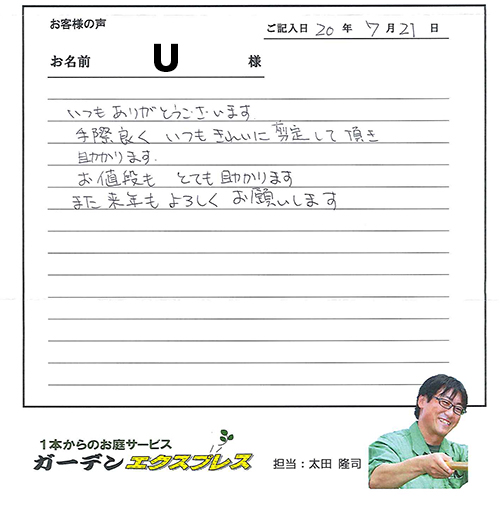 お客様の声
ご記入日 20 年 7 月 21 日
お名前 U 様
いつもありがとうございます
手際良く いつもきれいに剪定して頂き
助かります.
お値段も とても助かります
また来年もよろしくお願いします
1本からのお庭サービス
ガーデンエクスプレス
担当：太田 隆司